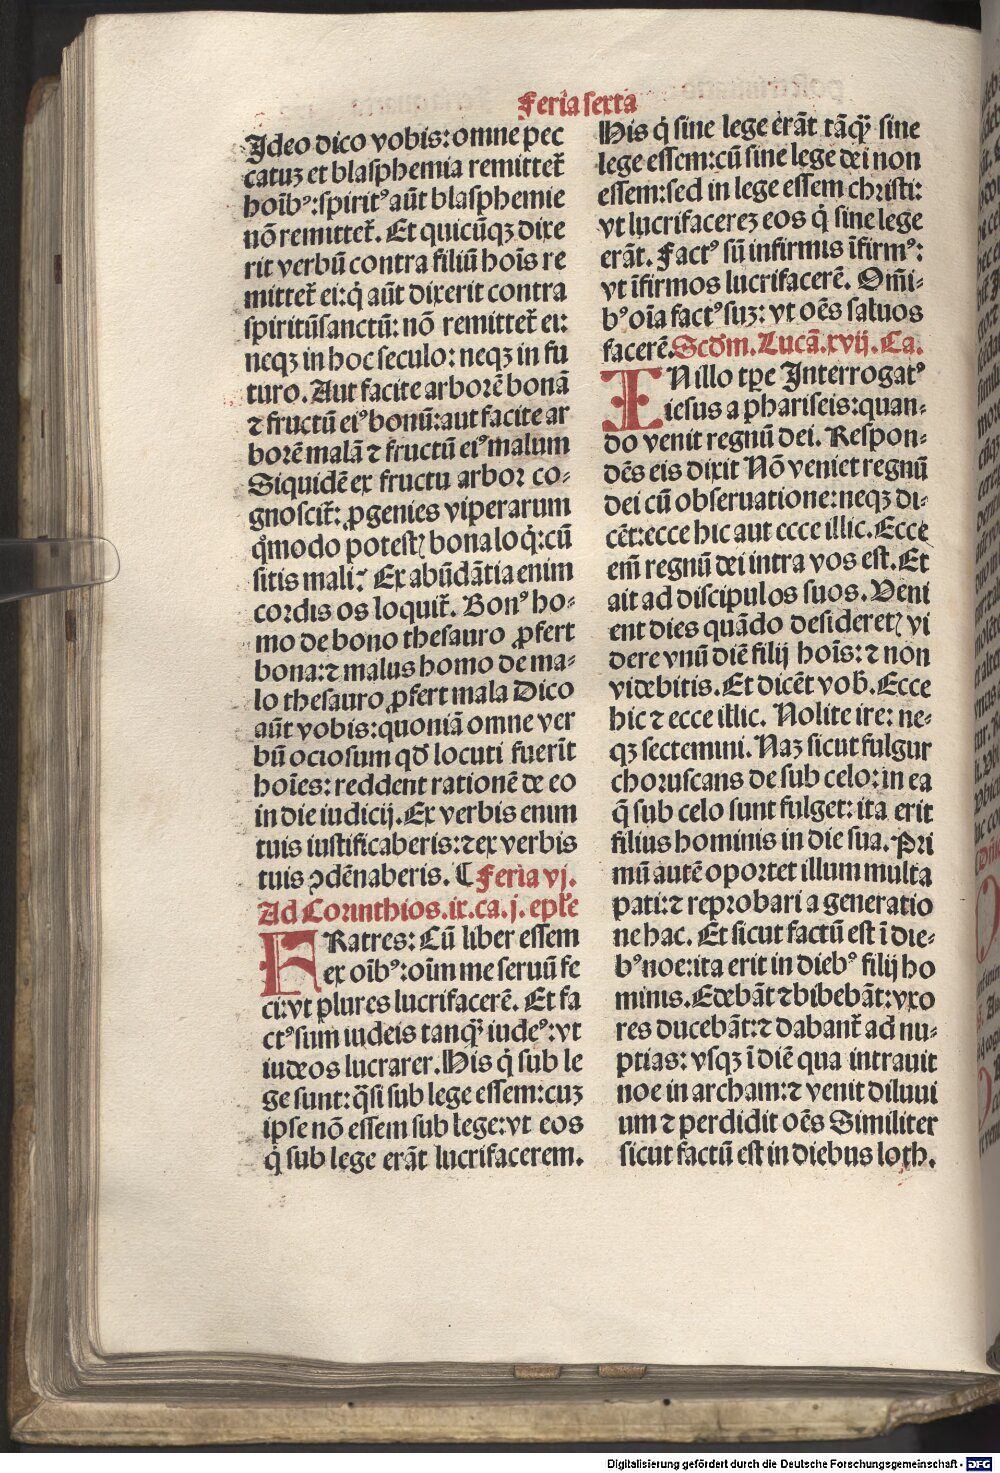 Feria sexta
Ideo dico vobis: omne pec
catuꝫ et blasphemia remittet̃
hoĩbꝰ: spiritꝰ aũt blasphemie
nõ remittet̃. Et quicũqꝫ dixe
rit verbũ contra filiũ hoĩs re
mittet̃ ei: q̇ aũt dixerit contra
spiritũsanctũ: nõ remittet̃ ei:
neqꝫ in hoc seculo: neqꝫ in fu
turo. Aut facite arborẽ bonã
⁊ fructũ eiꝰ bonũ: aut facite ar
borẽ malã ⁊ fructũ eiꝰ malum
Siquidẽ ex fructu arbor co⸗
gnoscit̃: ꝓgenies viperarum
q̊modo potestꝭ bona loq̇: cũ
sitis mali? Ex abũdãtia enim
cordis os loquit̃. Bonꝰ ho⸗
mo de bono thesauro ꝓfert
bona: ⁊ malus homo de ma⸗
lo thesauro ꝓfert mala Dico
aũt vobis: quoniã omne ver
bũ ociosum qđ locuti fuerĩt
hoĩes: reddent rationẽ de eo
in die iudicij. Ex verbis enim
tuis iustificaberis: ⁊ ex verbis
tuis ↄdẽnaberis. ⸿ Feria vj.
Ad Corinthios. ix. ca. j. epl̃e
FRatres: Cũ liber essem
ex oĩbꝰ: oĩm me seruũ fe
ci: vt plures lucrifacerẽ. Et fa
ctꝰ sum iudeis tanqᷓꝫ iudeꝰ: vt
iudeos lucrarer. His q̇ sub le
ge sunt: q̃si sub lege essem: cuꝫ
ipse nõ essem sub lege: vt eos
q̇ sub lege erãt lucrifacerem.
His q̇ sine lege erãt tãqᷓꝫ sine
lege essem: cũ sine lege dei non
essem: sed in lege essem christi:
vt lucrifacereꝫ eos q̇ sine lege
erãt. Factꝰ sũ infirmis ĩfirmꝰ:
vt ĩfirmos lucrifacerẽ. Om̃i⸗
bꝰ oĩa factꝰ suꝫ: vt oẽs saluos
facerẽ. Scđm. Lucã. xvij. Ca.
IN illo tp̃e Interrogatꝰ
iesus a phariseis: quan⸗
do venit regnũ dei. Respon⸗
dẽs eis dixit Nõ veniet regnũ
dei cũ obseruatione: neqꝫ di⸗
cẽt: ecce hic aut ecce illic. Ecce
em̃ regnũ dei intra vos est. Et
ait ad discipulos suos. Veni
ent dies quãdo desideretꝭ vi
dere vnũ diẽ filij hoĩs: ⁊ non
videbitis. Et dicẽt vob̃. Ecce
hic ⁊ ecce illic. Nolite ire: ne⸗
qꝫ sectemini. Naꝫ sicut fulgur
choruscans de sub celo: in ea
q̃ sub celo sunt fulget: ita erit
filius hominis in die sua. Pri
mũ autẽ oportet illum multa
pati: ⁊ reprobari a generatio
ne hac. Et sicut factũ est ĩ die⸗
bꝰ noe: ita erit in diebꝰ filij ho
minis. Edebãt ⁊ bibebãt: vxo
res ducebãt: ⁊ dabant̃ ad nu⸗
ptias: vsqꝫ ĩ diẽ qua intrauit
noe in archam: ⁊ venit diluui
um ⁊ perdidit oẽs Similiter
sicut factũ est in diebus loth.
Digitalisierung gefördert durch die Deutsche Forschungsgemeinschaft - DFG